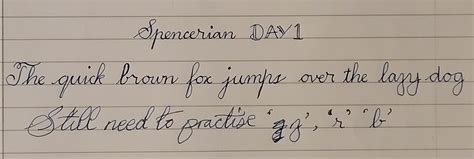 Spencerian DAY 1
The quick brown fox jumps over the lazy dog
Still need to practise 'z', 'r' 'b'